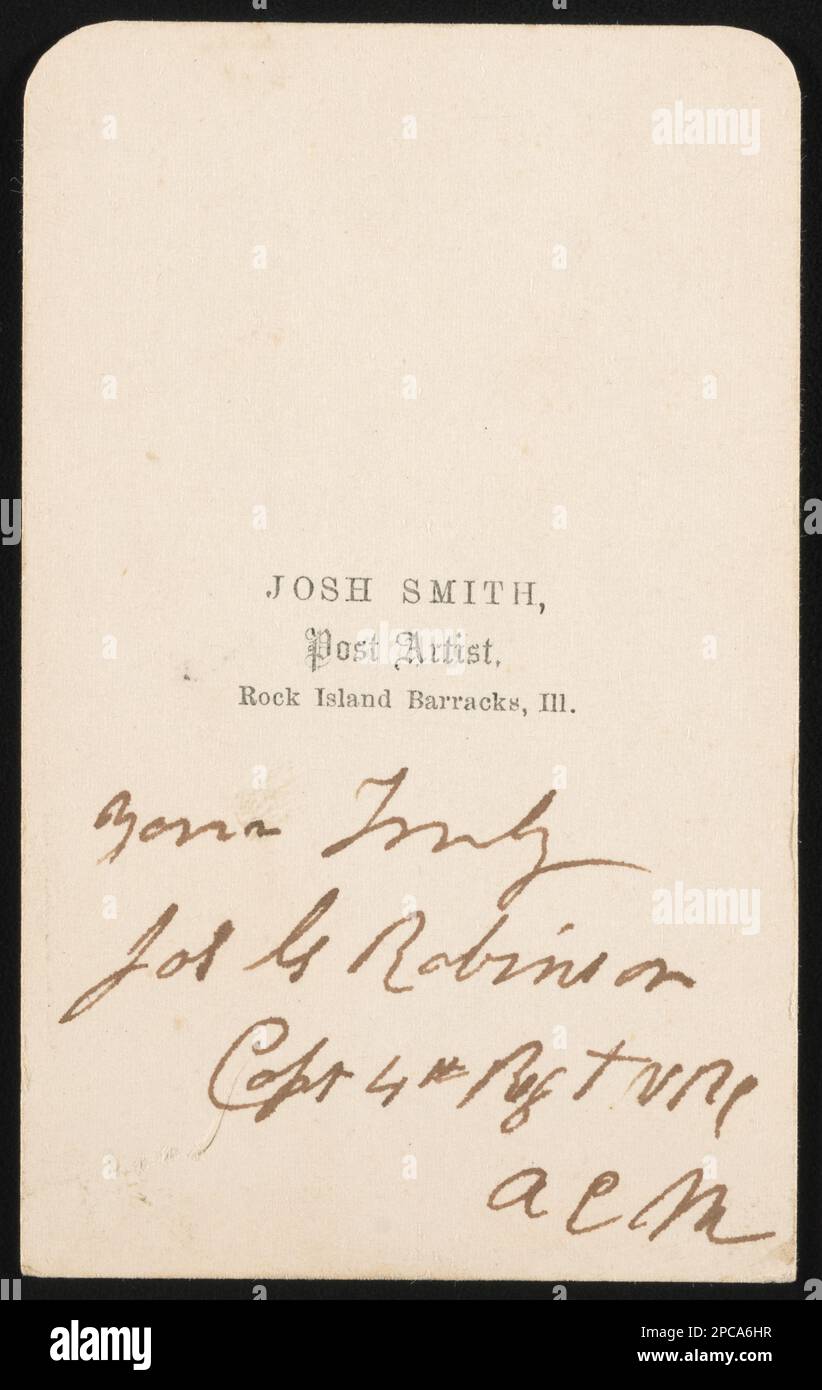 JOSH SMITH,
Post Artist,
Rock Island Barracks, Ill.
Yours Truly
Jos G Robinson
Capt 4th Regt VRC
A C M
alamy
Image ID: 2PCA6HR
www.alamy.com